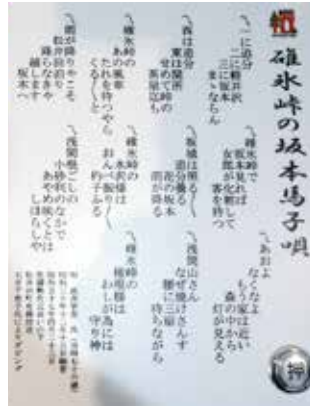 碓氷峠の坂本馬子唄
一に追分
二に軽井沢
三に坂本
まゝならん
西は追分
東は関所
せめて峠の
茶屋迄も
碓氷峠の
あの風車
たれを待つやら
くる〱と
雨が降りやこそ
松井田泊り
降らなきや
越します
坂本へ
碓氷峠で
坂本見れば
女郎が化粧して
客を待つ
坂城は照る〱
追分曇る
花の坂本
雨が降る
碓氷峠の
おんべ振り〱
杓子ふる
浅間根ごしの
小砂利のなかで
あやめ咲くとは
しほらしや
あおよ
なくなよ
もう家は近い
森の中から
灯が見える
浅間山さん
なぜ焼けさんす
腰に三宿
待ちながら
碓氷峠の
権現様は
おしが為には
守り神
押